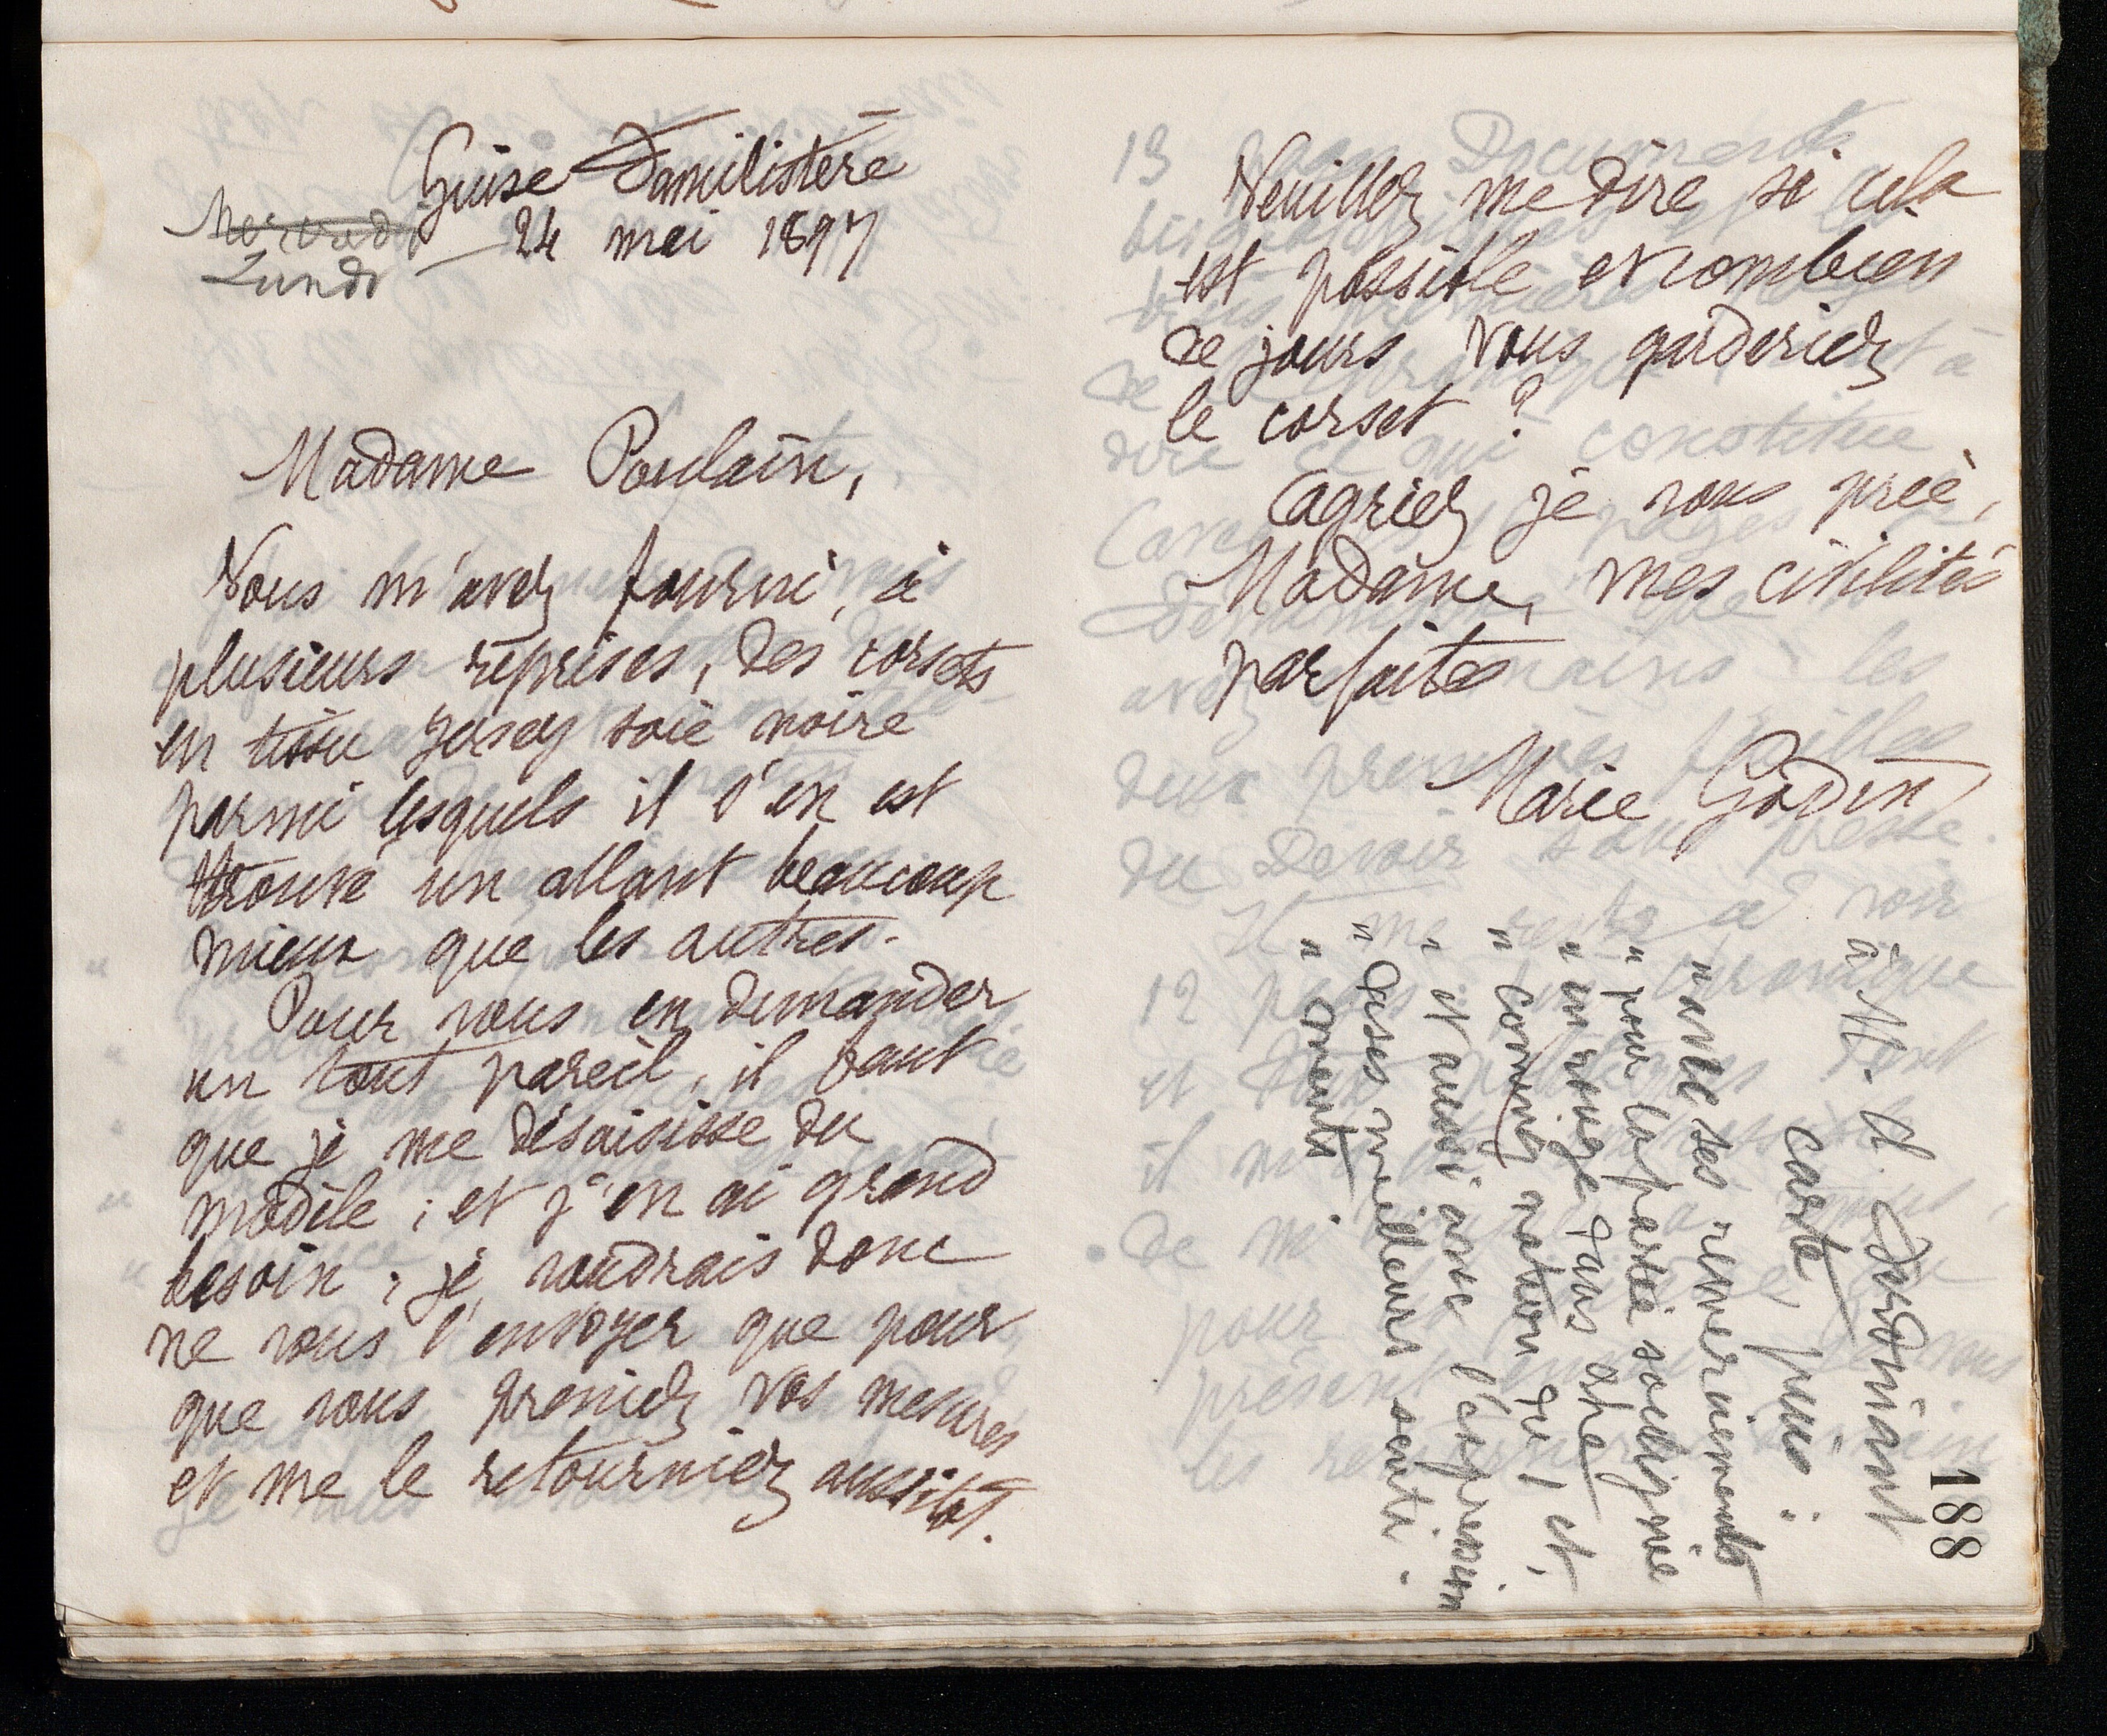 Guise Familistère
Mercredi
Lundi — 24 mai 1897
Madame Poulain,
Vous m'avez fourni, à
plusieurs reprises, des corsets
en tissu jersey soie noire
parmi lesquels il s'en est
trouvé un allant beaucoup
mieux que les autres.
Pour vous en demander
un tout pareil, il faut
que je me désaisisse du
modèle ; et j'en ai grand
besoin ; je voudrais donc
ne vous l'envoyer que pour
que vous preniez vos mesures
et me le retourniez aussitôt.
Veuillez me dire si cela
est possible et combien
de jours vous garderiez
le corset ?
Agréez je vous prie,
Madame, mes civilités
parfaites
Marie Godin
188
à M. A.
carte, puis :
" avec ses remerciements
" pour la partie soulignée
" en rouge dans che
" notion qu'
" et aussi avec l'expression
" de ses meilleurs senti-
" ments.